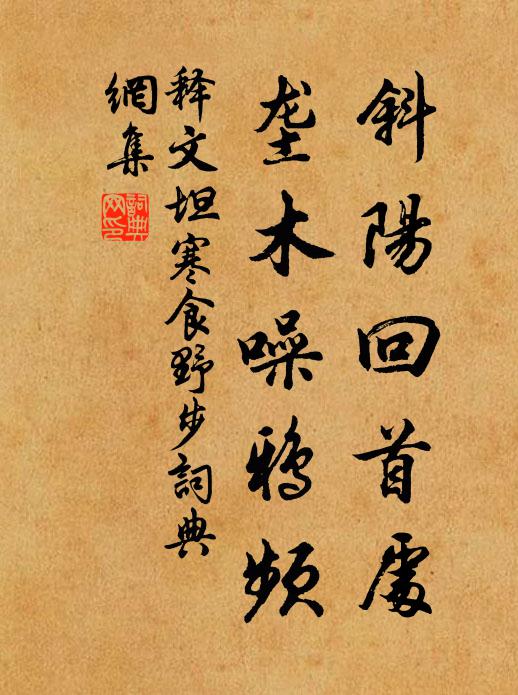 斜陽回首處
垄木噪鴉頻
释文坦寒食野步詞典
網集
詞典
网印